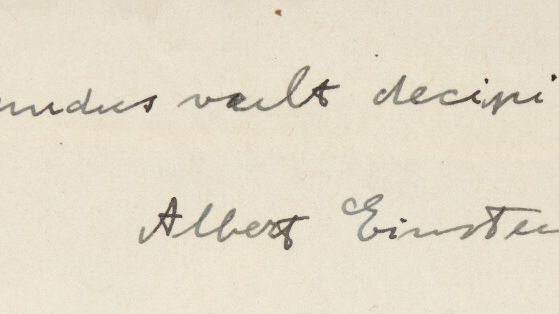 mundus vult decipi
Albert Einstein